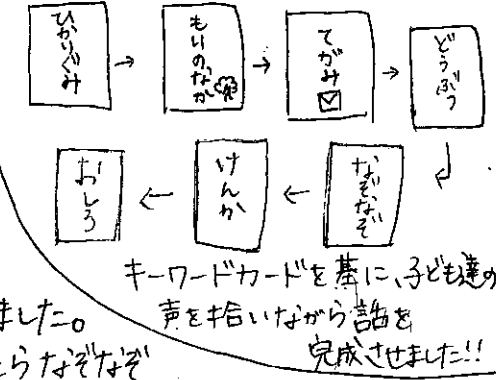 ひかりぐみ
もりのなか
てがみ
どうぶつ
なぞなぞ
けんか
おしろ
キーワードカードを基に、子ども達の
声を拾いながら話を
完成させました!!
ました。
らなぞなぞ